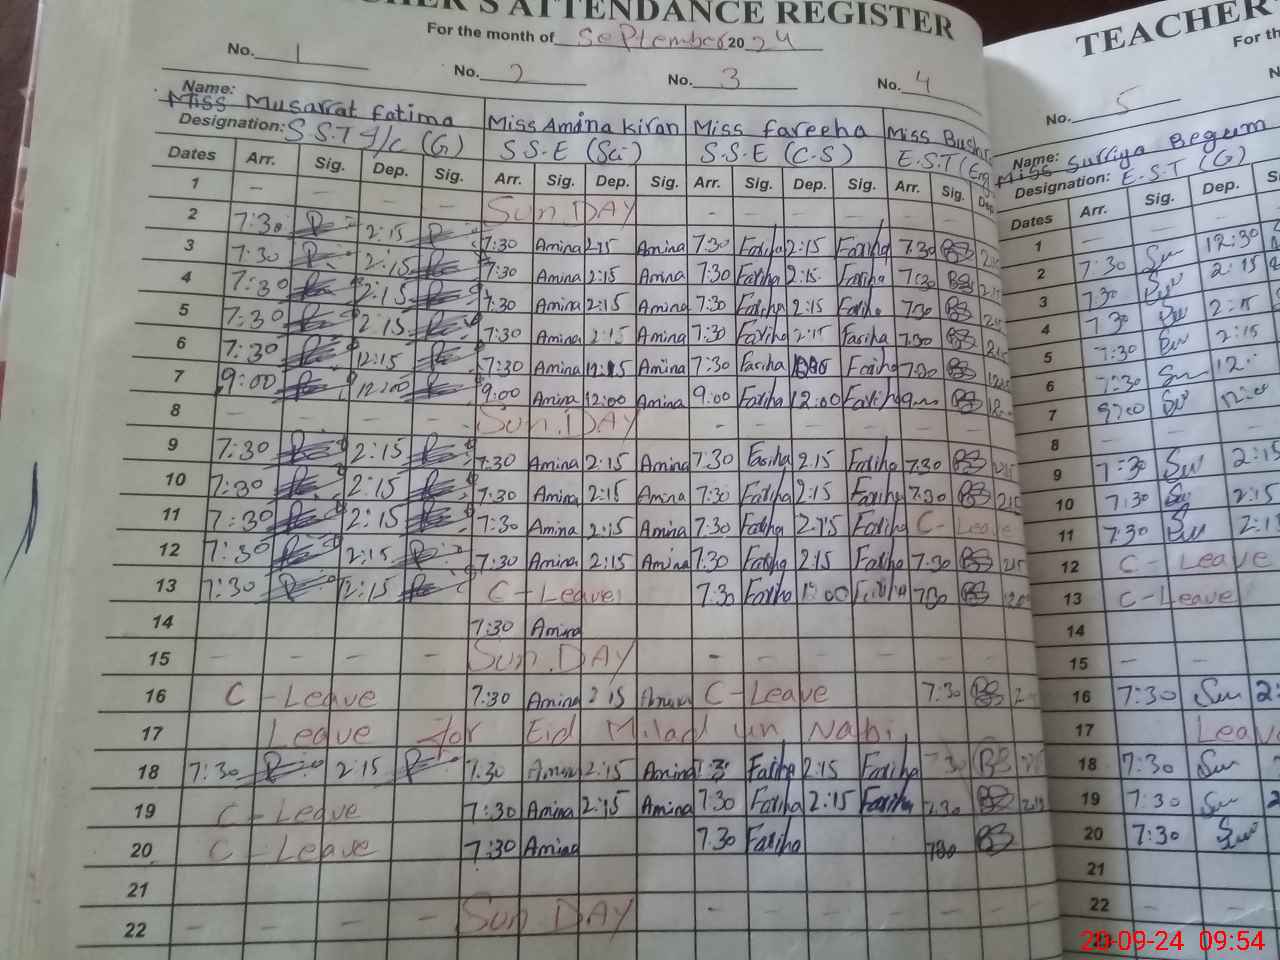 TEACHER'S ATTENDANCE REGISTER
For the month of September 2024
No. 1 No. 2 No. 3 No. 4
Name: Miss Musarrat Fatima Miss Amina Kiran Miss Fareeha Miss
Designation: S.S.T I/C (G) S.S.E (Sci) S.S.E (C.S) E.S.T (Eng
Dates Arr. Sig. Dep. Sig. Arr. Sig. Dep. Sig. Arr. Sig. Dep. Sig. Arr. Sig. Dep
1 – – – Sun.DAY – – – –
2 7:30 2:15 7:30 Amina 2:15 Amina 7:30 Fariha 2:15 Fariha 7:30
3 7:30 2:15 7:30 Amina 2:15 Amina 7:30 Fariha 2:15 Fariha 7:30
4 7:30 2:15 7:30 Amina 2:15 Amina 7:30 Fariha 2:15 Fariha 7:30
5 7:30 2:15 7:30 Amina 2:15 Amina 7:30 Fariha 2:15 Fariha 7:30
6 7:30 12:15 7:30 Amina 12:15 Amina 7:30 Fariha Fariha 7:30
7 9:00 12:00 9:00 Amina 12:00 Amina 9:00 Fariha 12:00 Fariha
8 – – – – Sun.DAY – – – –
9 7:30 2:15 7:30 Amina 2:15 Amina 7:30 Fariha 2:15 Fariha 7:30
10 7:30 2:15 7:30 Amina 2:15 Amina 7:30 Fariha 2:15 Fariha 7:30
11 7:30 2:15 7:30 Amina 2:15 Amina 7:30 Fariha 2:15 Fariha C-Leave
12 7:30 2:15 7:30 Amina 2:15 Amina 7:30 Fariha 2:15 Fariha 7:30
13 7:30 2:15 C-Leave 7:30 Fariha 12:00 Fariha 7:30
14 7:30 Amina
15 – – – – Sun.DAY – – – –
16 C-Leave 7:30 Amina 2:15 Amina C-Leave 7:30
17 Leave for Eid Milad un Nabi
18 7:30 2:15 7:30 Amina 2:15 Amina 7:30 Fariha 2:15 Fariha
19 C-Leave 7:30 Amina 2:15 Amina 7:30 Fariha 2:15 Fariha 7:30
20 C-Leave 7:30 Amina 7:30 Fariha 7:30
21
22 – – – – Sun DAY – – – –
TEACHER'
For th
No. 5
Name: Miss Surriya Begum
Designation: E.S.T (G)
Dates Arr. Sig. Dep. S
1 – – –
2 7:30 12:30
3 7:30 2:15
4 7:30 2:15
5 7:30 2:15
6 7:30 12:
7 9:00 12:0
8 – – –
9 7:30 2:15
10 7:30 2:15
11 7:30 2:1
12 C-Leave
13 C-Leave
14
15 – –
16 7:30 2:
17 Leav
18 7:30
19 7:30 2
20 7:30
21
22 – –
20-09-24 09:54